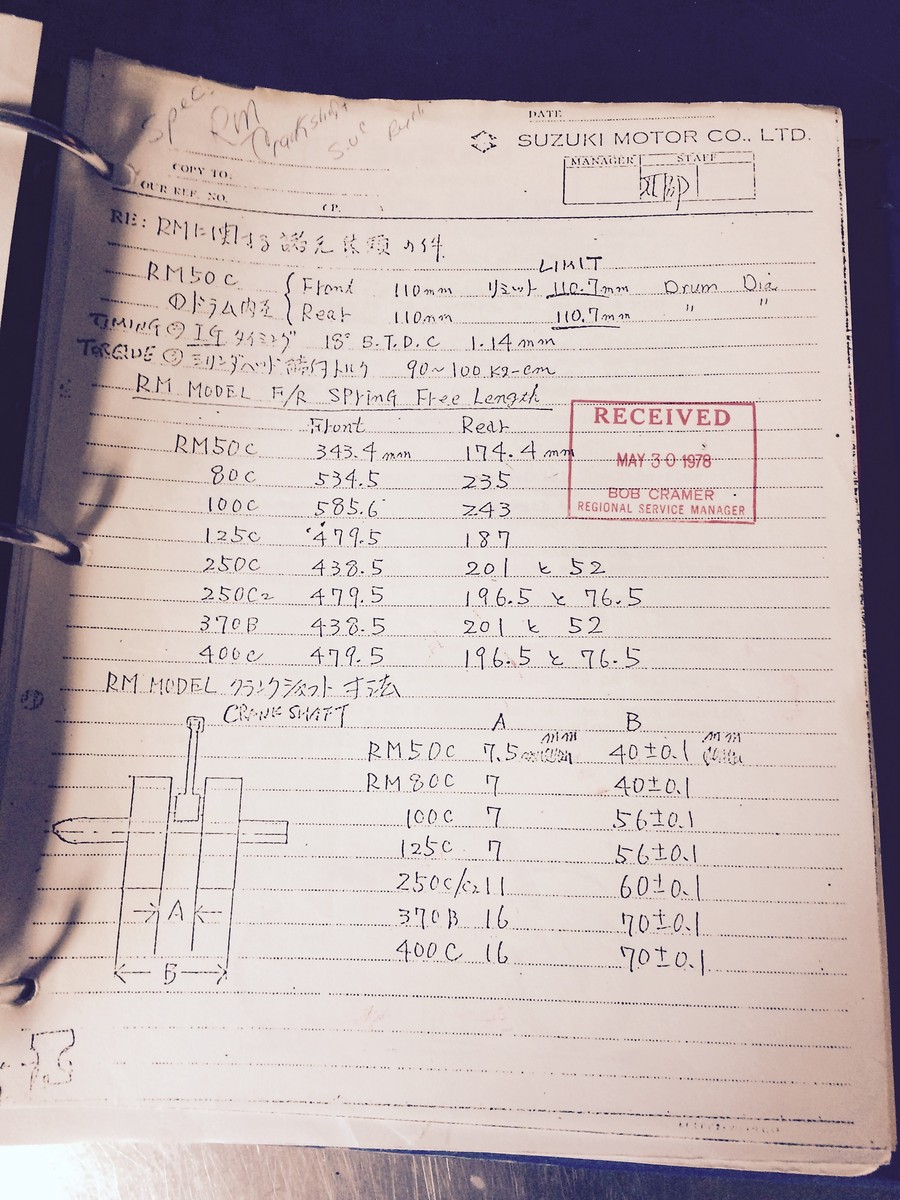 Spec. RM Crankshaft
DATE
SUZUKI MOTOR CO., LTD.
MANAGER STAFF
COPY TO.
OUR REF. NO. (P. )
RE: RMに関する諸元依頼の件
LIMIT
RM50C Front 110mm リミット 110.7mm Drum Dia
のドラム内径 Rear 110mm 110.7mm " "
TIMING ② IG タイミング 18° B.T.D.C 1.14mm
TORQUE ③ シリンダヘッド締付トルク 90~100 Kg-cm
RM MODEL F/R SPring Free Length
Front Rear
RM50C 343.4mm 174.4mm
80C 534.5 235
100C 585.6 243
125C 479.5 187
250C 438.5 201 と 52
250C2 479.5 196.5 と 76.5
370B 438.5 201 と 52
400C 479.5 196.5 と 76.5
RECEIVED
MAY 30 1978
BOB CRAMER
REGIONAL SERVICE MANAGER
RM MODEL クランクシャフト寸法
CRANKSHAFT A B
mm mm
RM50C 7.5 40±0.1
RM80C 7 40±0.1
100C 7 56±0.1
125C 7 56±0.1
250C/C2 11 60±0.1
370B 16 70±0.1
400C 16 70±0.1
A
B